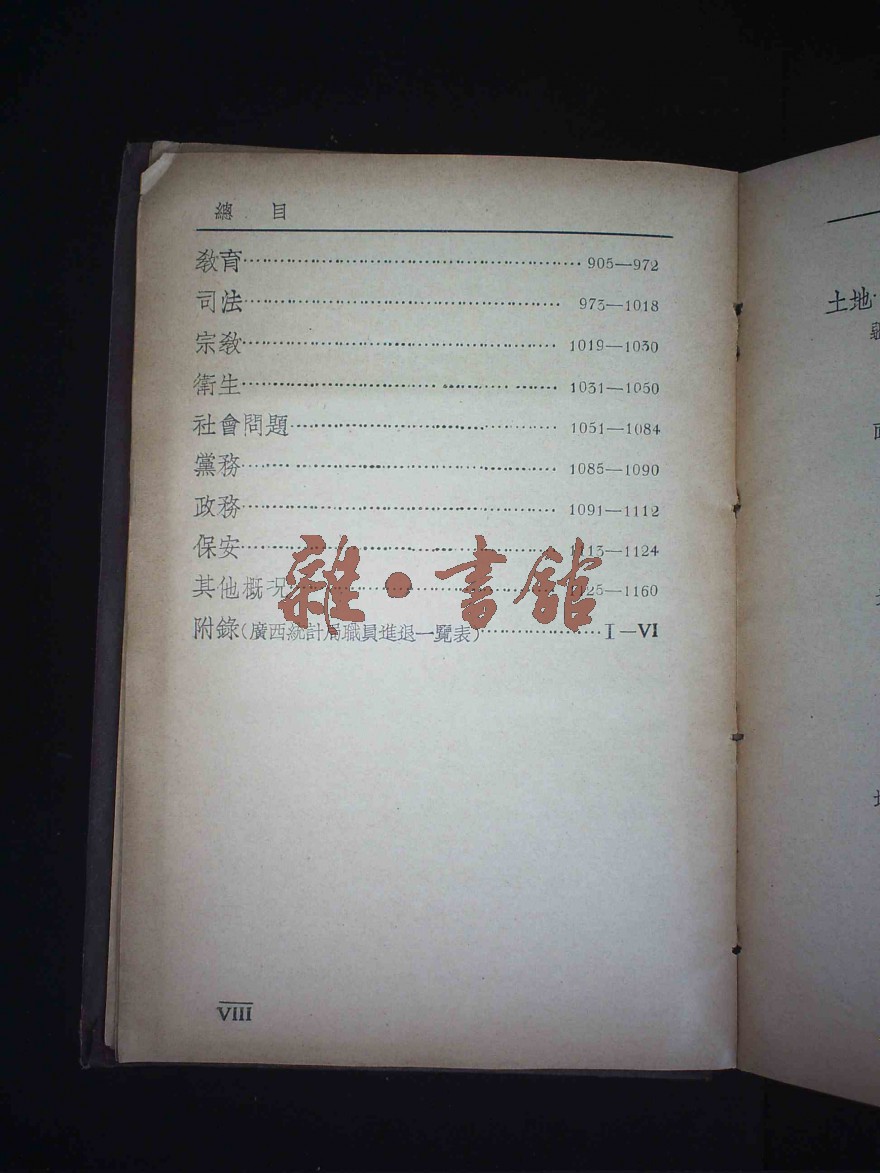 總 目
敎育 905—972
司法 973—1018
宗敎 1019—1030
衛生 1031—1050
社會問題 1051—1084
黨務 1085—1090
政務 1091—1112
保安 1113—1124
其他概況 1125—1160
附錄(廣西統計局職員進退一覽表) I—VI
VIII
雜·書館
土地